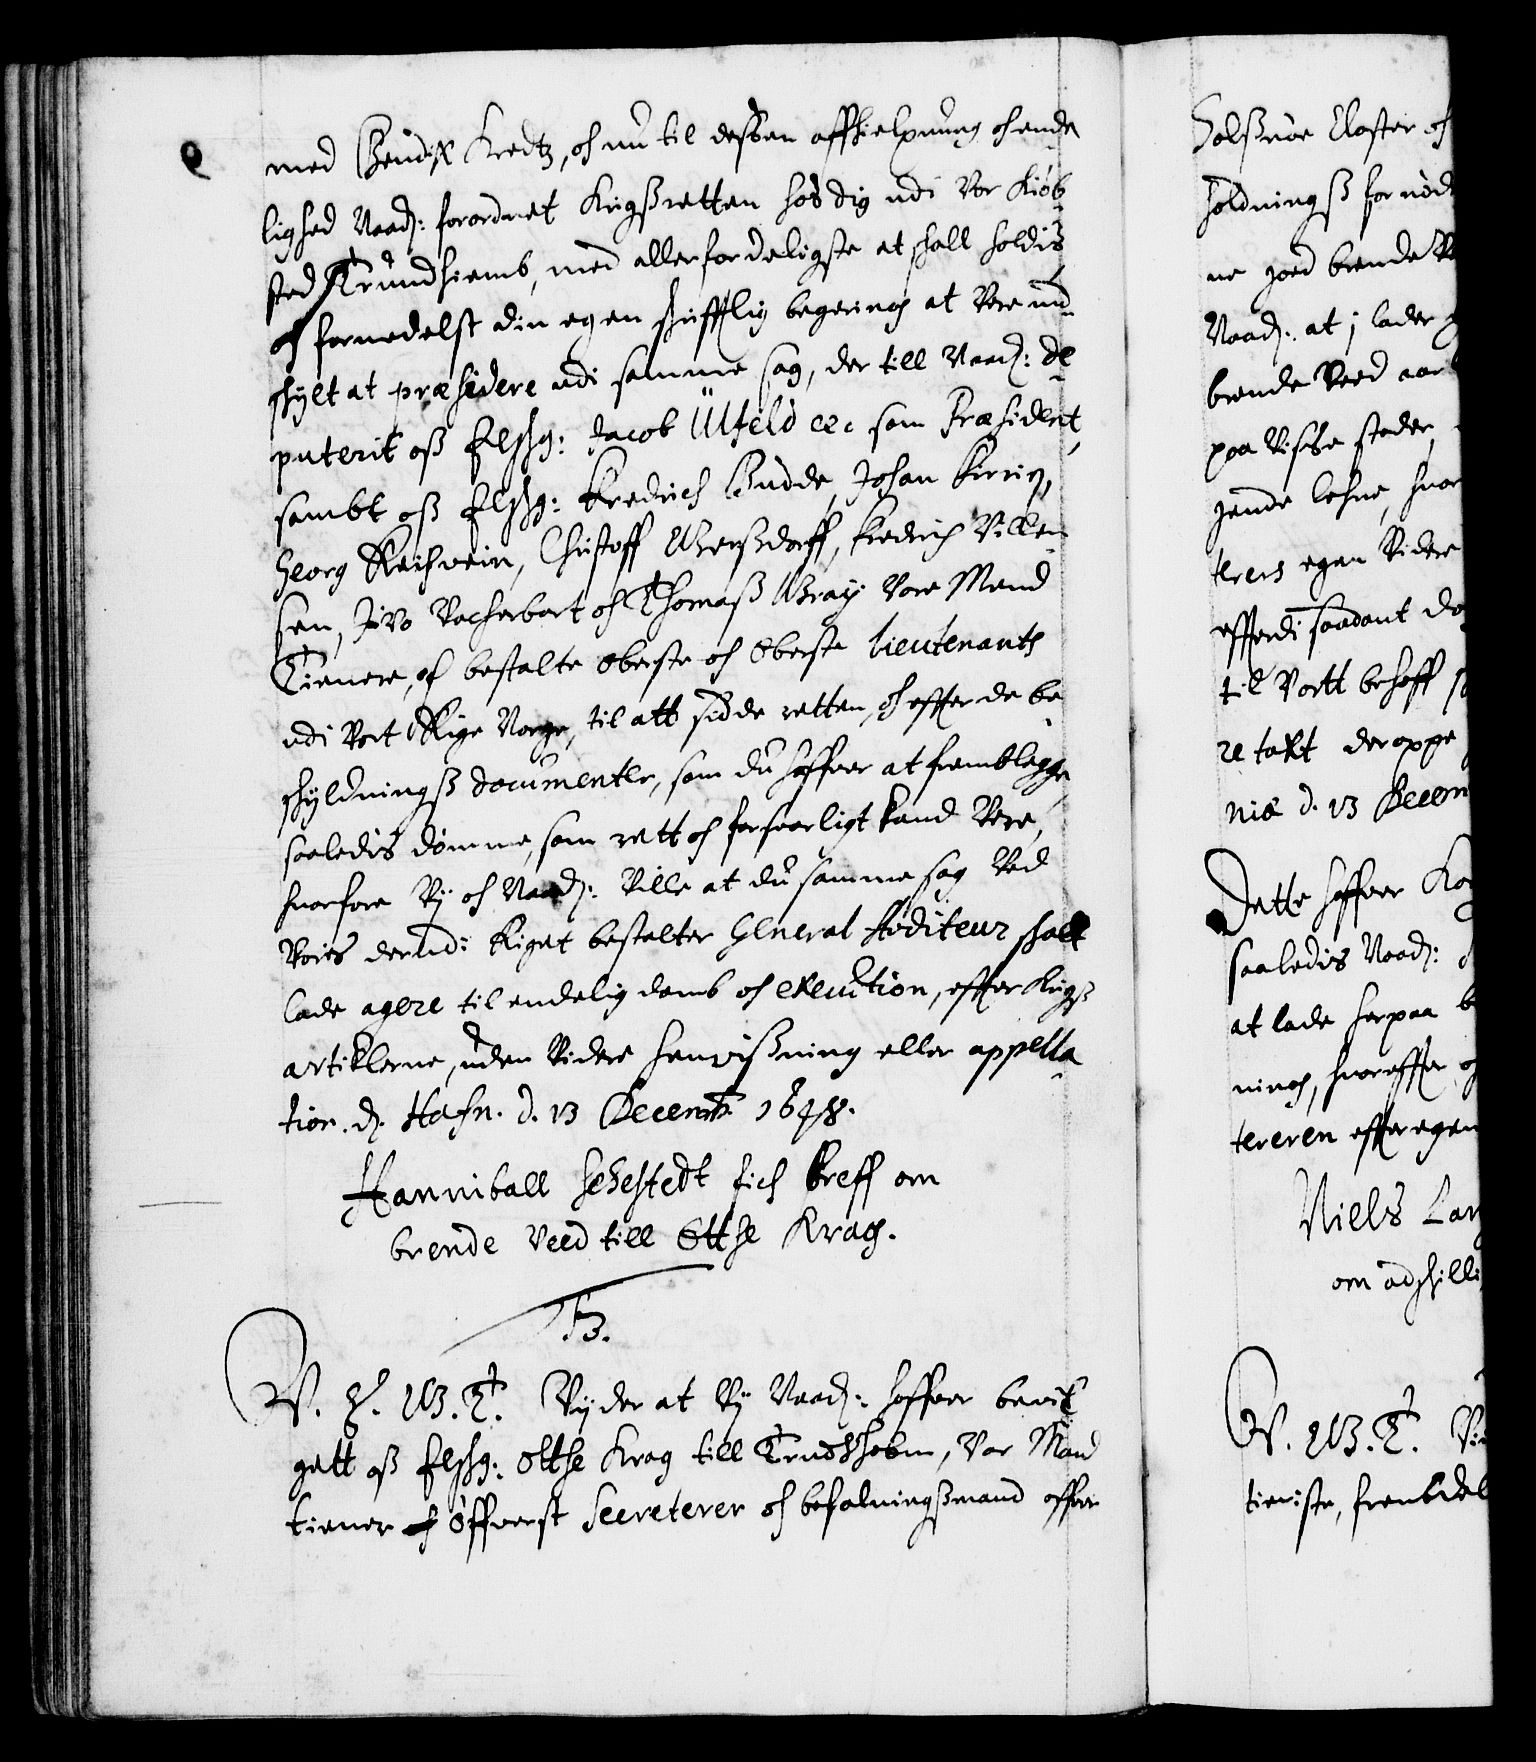 med Bendix Kretz, och nu til dessen affhielpning och ende
lighed Naad: forordnet Krigßretten hoß dig udi Vor Kiøb
sted Trundhiemb, med allerforderligste at schall holdis
och formedelst din egen schrifftlig begering at Vere und
schylt at præsidere udi samme sag, der till Naad: de
puterit oß Elschg: Jacob Ulfeld etc som Præsident,
sambt oß Elschg: Fredrich Budde, Johan
Georg Reichwein, Christoff Gerßdorff, Fredrich Villem
sen, Ivo Racherbart och Thomaß Gray Vore Mend
Tienere, och bestalte Oberste och Oberste lieutenants
udi Vort Rige Norge, til att sidde retten, och effter de be
schyldningß documenter, som du haffver at fremblegge
saaledis dømme, som rett och forsvarligt kand Vere,
hvorfore Vij och Naad: Ville at du samme sag Ved
Voris derud: Riget bestalter General Auditeur schalt
lade agere til endelig domb och execution, effter Krigß
artiklerne, uden Videre henvißning eller appella
tion. d. Hafn. d. 13 Decemb. 1648.
Hanniball Sehestedt fich breff om
brende Veed till Otthe Krag.
C4.
V. G. T. Vijder at Vij Naad: haffver bevil
gett oß Elschg: Otthe Krag till Trudßholm, Vor Mand
tiener och øffverst Secreterer och befalningßmand offver
Holßnøe Closter och
holdningß fornød
ne goed brende V
Naad: at j lader
brende Veed aar
paa Visse steder,
gende lehne, hvor
terers egen Videre
efftterdi saadant
til Vortt behoff
re taxt deroppe
nis d. 13 Decem
Dette haffver
saaledis Naad:
at lade herpaa
ning, hvoreffter
tereren effter egen
Niels Lan
om adschilli
V. G. T.
tieniste, frembdel